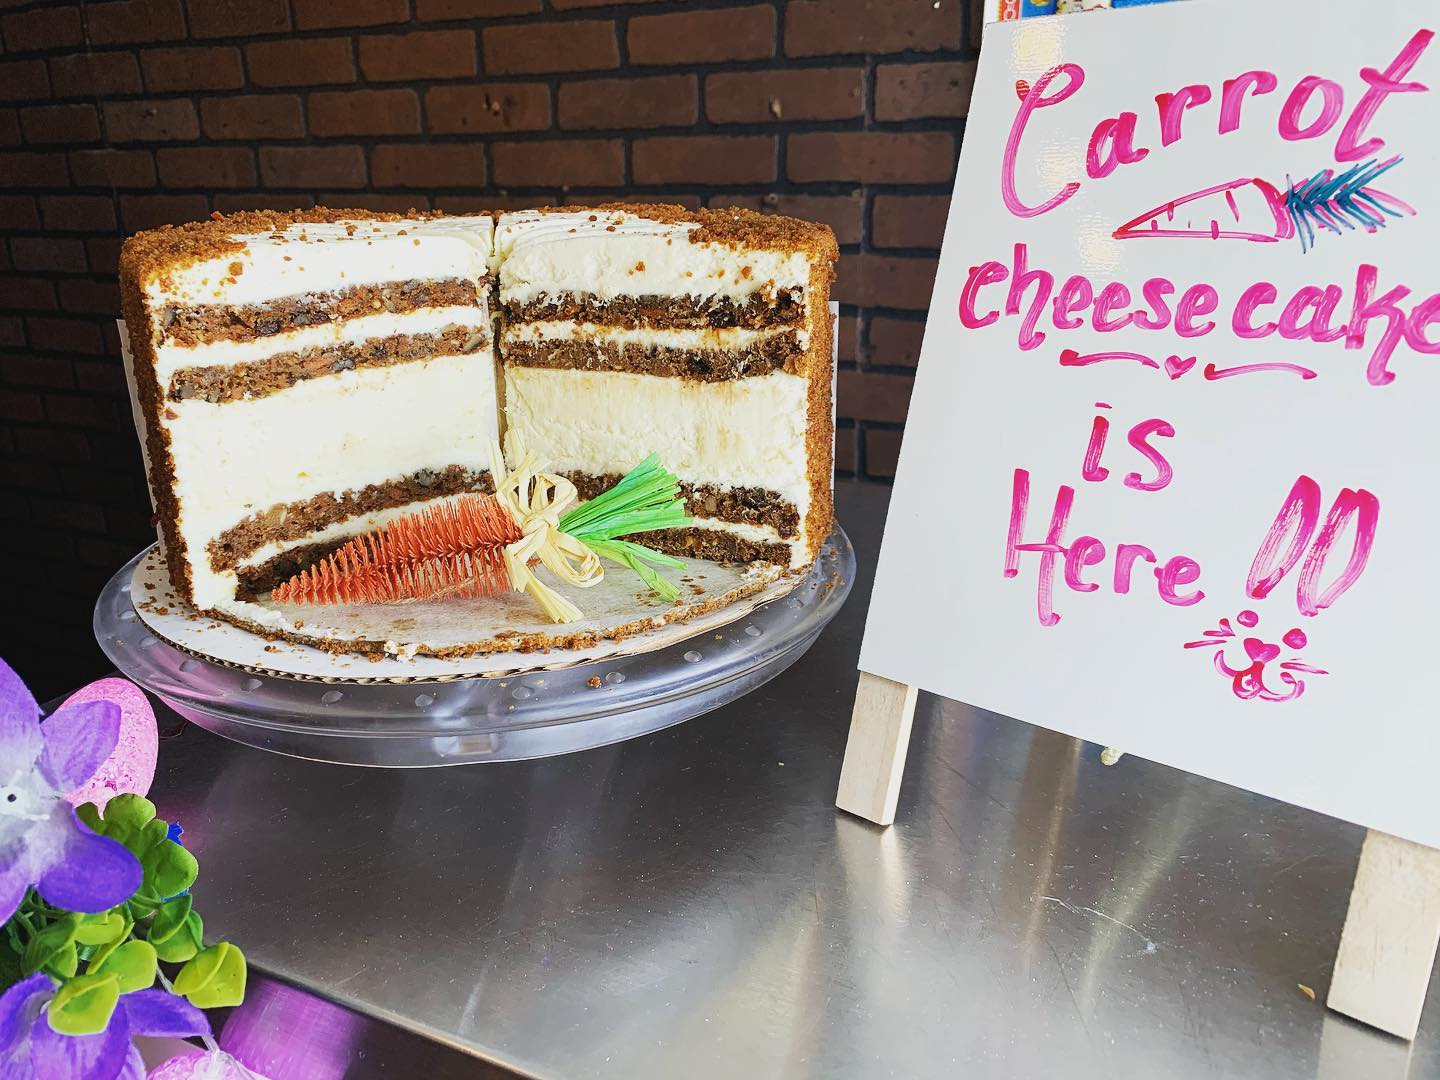 Carrot
cheesecake
is
Here